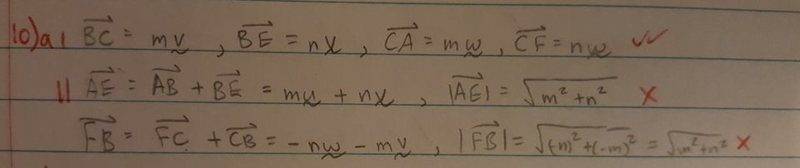 10)a| BC→ = mv̰ , BE→ = nx , CA→ = mw̰ , CF→ = nw̰ ✓✓
|| AE→ = AB→ + BE→ = mṵ + nx , |AE→| = √(m² + n²) ×
FB→ = FC→ + CB→ = -nw̰ - mv̰ , |FB→| = √((-n)² + (-m)²) = √(m² + n²) ×